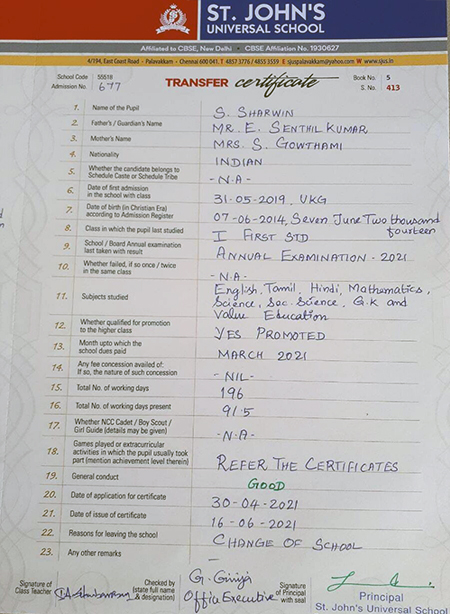 ST. JOHN'S
UNIVERSAL SCHOOL
Affiliated to CBSE, New Delhi • CBSE Affiliation No. 1930627
4/194, East Coast Road - Palavakkam, Chennai 600 041. T 4857 3776 / 4855 3559 E sjuspalavakkam@yahoo.com W www.sjus.in
School Code 55518
Book No. 5
Admission No. 677
TRANSFER certificate
S. No. 413
1. Name of the Pupil S. SHARWIN
2. Father's / Guardian's Name MR. E. SENTHIL KUMAR
3. Mother's Name MRS. S. GOWTHAMI
4. Nationality INDIAN
5. Whether the candidate belongs to
Schedule Caste or Schedule Tribe -N.A-
6. Date of first admission
in the school with class 31-05-2019, UKG
7. Date of birth (in Christian Era)
according to Admission Register 07-06-2014, Seven June Two thousand
fourteen
8. Class in which the pupil last studied I FIRST STD
9. School / Board Annual examination
last taken with result ANNUAL EXAMINATION - 2021
10. Whether failed, if so once / twice
in the same class -N.A-
11. Subjects studied English, Tamil, Hindi, Mathematics,
Science, Soc. Science, G.K and
Value Education
12. Whether qualified for promotion
to the higher class YES PROMOTED
13. Month upto which the
school dues paid MARCH 2021
14. Any fee concession availed of:
If so, the nature of such concession -NIL-
15. Total No. of working days 196
16. Total No. of working days present 91.5
17. Whether NCC Cadet / Boy Scout /
Girl Guide (details may be given) -N-A-
18. Games played or extracurricular
activities in which the pupil usually took
part (mention achievement level therein) REFER THE CERTIFICATES
19. General conduct GOOD
20. Date of application for certificate 30-04-2021
21. Date of issue of certificate 16-06-2021
22. Reasons for leaving the school CHANGE OF SCHOOL
23. Any other remarks —
Signature of
Class Teacher
Checked by
(state full name
& designation)
G. Girija
Office Executive
Signature of
Principal
with seal
Principal
St. John's Universal School